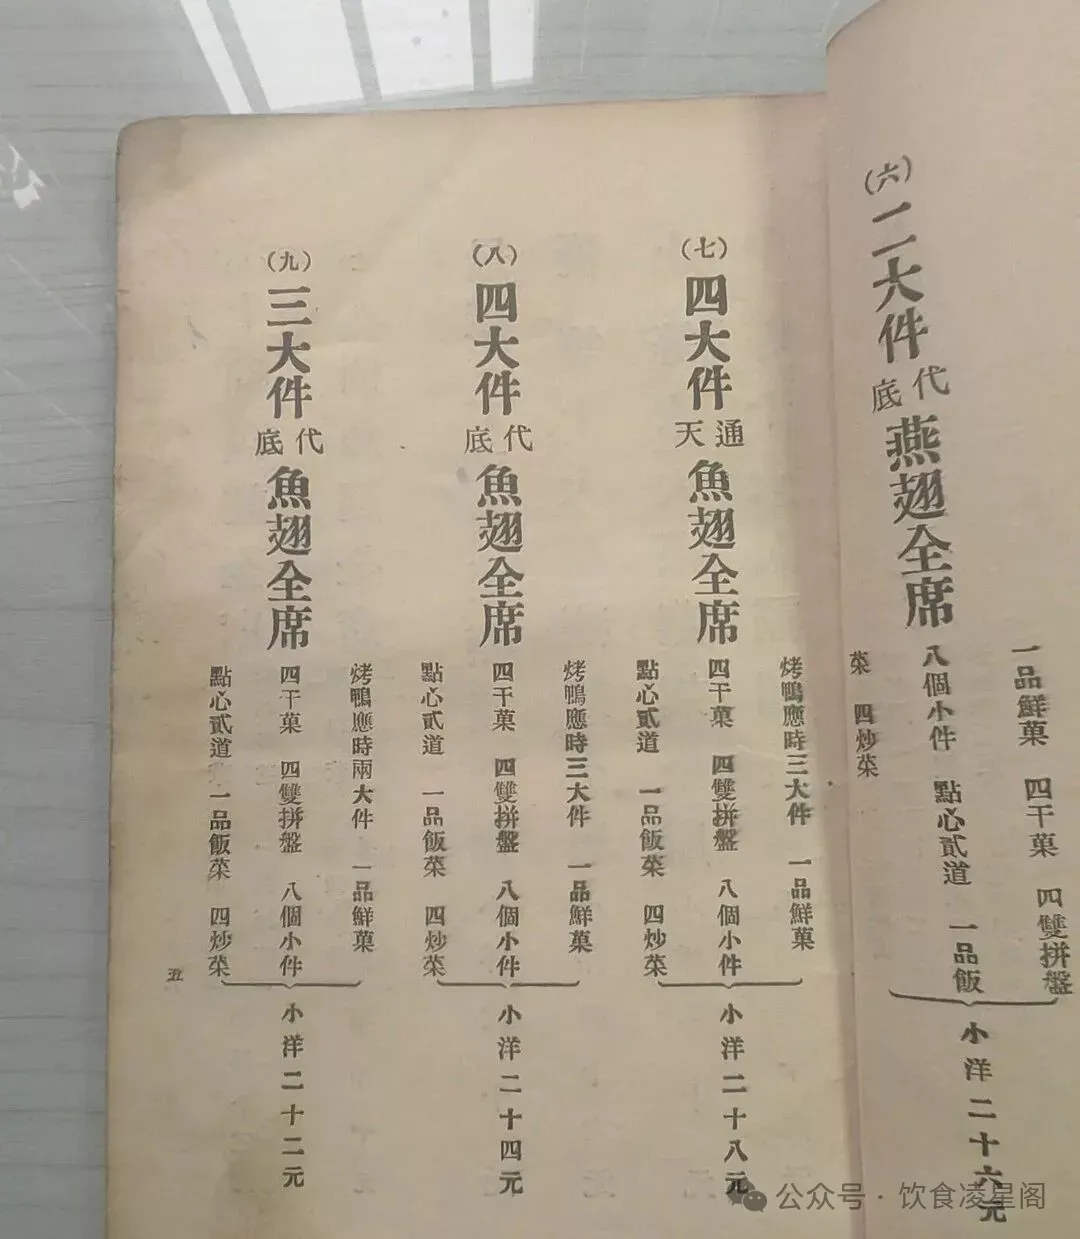 (六)
二大件
代底
燕翅全席
一品鮮菓 四干菓 四雙拼盤
八個小件 點心貳道 一品飯
菜 四炒菜
小洋二十六元
(七)
四大件
通天
魚翅全席
烤鴨應時三大件 一品鮮菓
四干菓 四雙拼盤 八個小件
點心貳道 一品飯菜 四炒菜
小洋二十八元
(八)
四大件
代底
魚翅全席
烤鴨應時三大件 一品鮮菓
四干菓 四雙拼盤 八個小件
點心貳道 一品飯菜 四炒菜
小洋二十四元
(九)
三大件
代底
魚翅全席
烤鴨應時兩大件 一品鮮菓
四干菓 四雙拼盤 八個小件
點心貳道 一品飯菜 四炒菜
小洋二十二元
五
公众号·饮食凌星阁